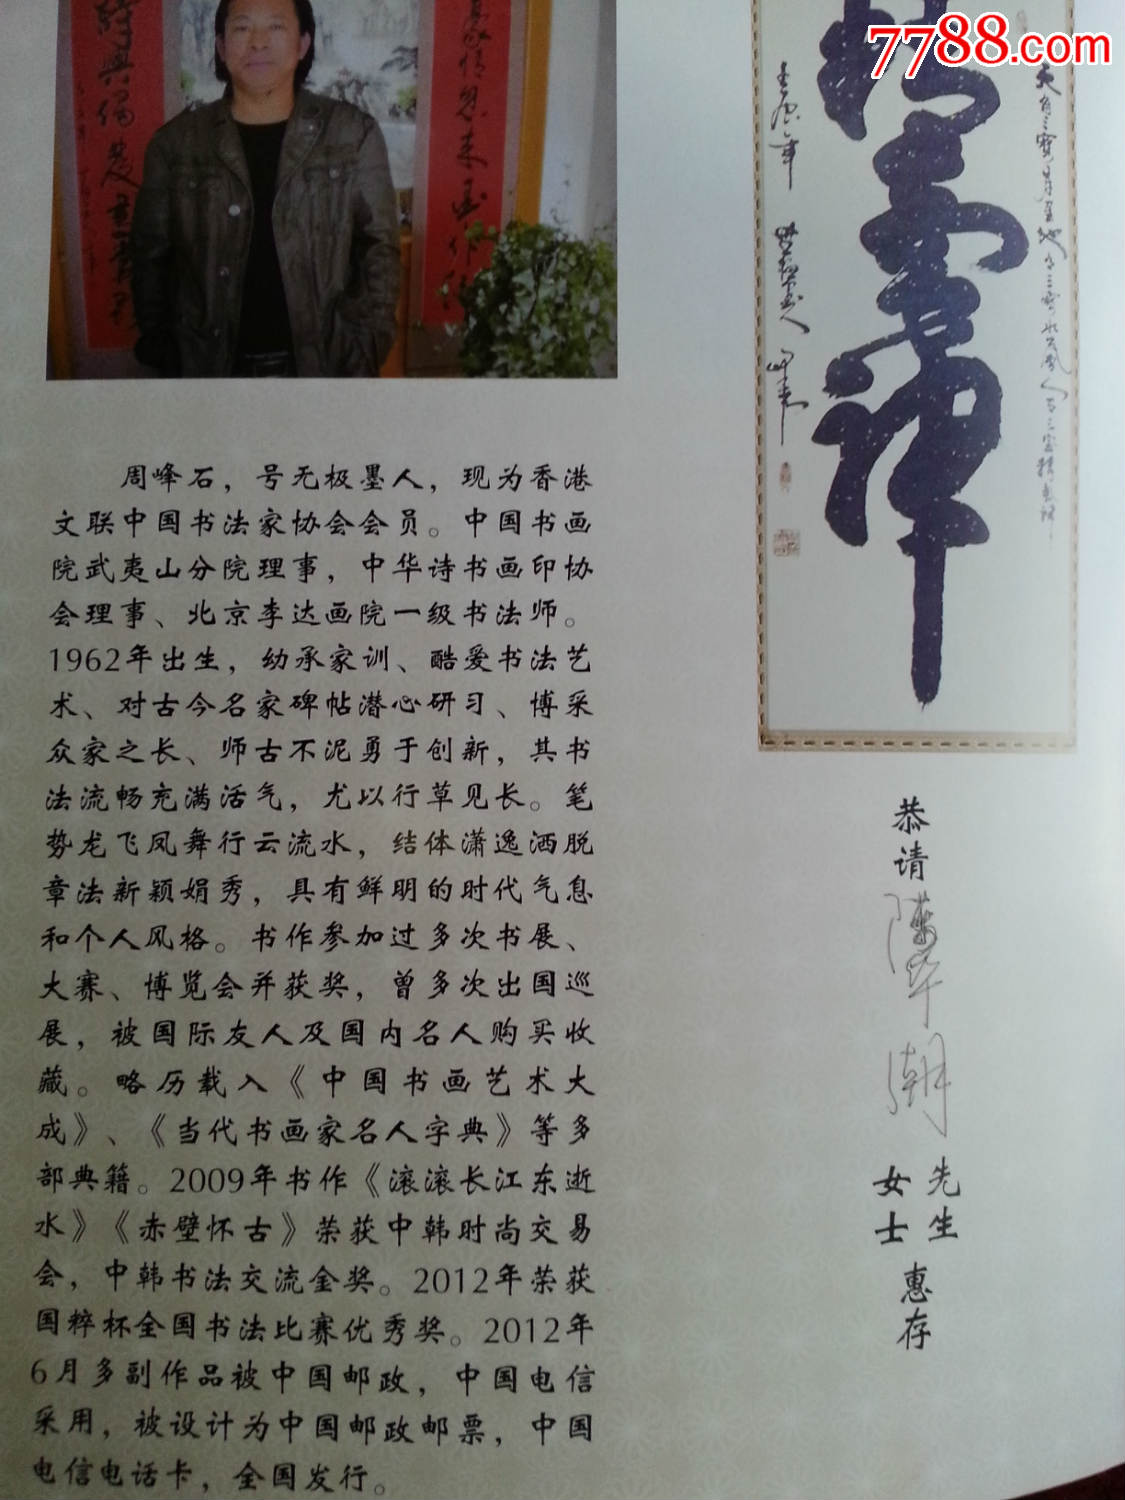 7788.com
周峰石，号无极墨人，现为香港
文联中国书法家协会会员。中国书画
院武夷山分院理事，中华诗书画印协
会理事、北京李达画院一级书法师。
1962年出生，幼承家训、酷爱书法艺
术、对古今名家碑帖潜心研习、博采
众家之长、师古不泥勇于创新，其书
法流畅充满活气，尤以行草见长。笔
势龙飞凤舞行云流水，结体潇逸洒脱
章法新颖娟秀，具有鲜明的时代气息
和个人风格。书作参加过多次书展、
大赛、博览会并获奖，曾多次出国巡
展，被国际友人及国内名人购买收
藏。略历载入《中国书画艺术大
成》、《当代书画家名人字典》等多
部典籍。2009年书作《滚滚长江东逝
水》《赤壁怀古》荣获中韩时尚交易
会，中韩书法交流金奖。2012年荣获
国粹杯全国书法比赛优秀奖。2012年
6月多副作品被中国邮政，中国电信
采用，被设计为中国邮政邮票，中国
电信电话卡，全国发行。
恭请
先生
女士
惠存